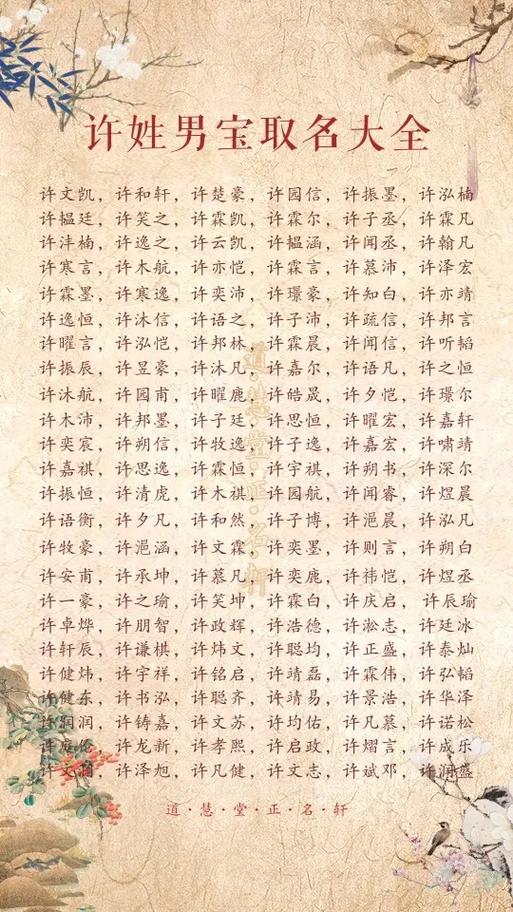 许姓男宝取名大全
许文凯，许和轩，许楚豪，许园信，许振墨，许泓楠
许韫廷，许笑之，许霖凯，许霖尔，许子丞，许霖凡
许沣楠，许逸之，许云凯，许韫涵，许闻丞，许翰凡
许寒言，许木航，许亦恺，许霖言，许慕沛，许泽宏
许霖墨，许寒逸，许奕沛，许璟豪，许知白，许亦靖
许逸恒，许沐信，许语之，许子沛，许疏信，许邦言
许曜言，许泓恺，许邦林，许霖晨，许闻信，许听韬
许振辰，许昱豪，许沐凡，许嘉尔，许语凡，许之恒
许沐航，许园甫，许曜鹿，许皓晟，许夕恺，许璟尔
许木沛，许邦墨，许子廷，许思恒，许曜宏，许嘉轩
许奕宸，许朔信，许牧逸，许子逸，许嘉宏，许啸靖
许嘉祺，许思逸，许霖恒，许宇祺，许朔书，许深尔
许振恒，许清虎，许木祺，许园航，许闻睿，许煜晨
许语衡，许夕凡，许和然，许子博，许浥晨，许泓凡
许牧豪，许浥涵，许文霖，许奕墨，许则言，许朔白
许安甫，许承坤，许慕凡，许奕鹿，许祎恺，许煜丞
许一豪，许之瑜，许笑坤，许霖白，许庆启，许辰瑜
许卓烨，许朋智，许政辉，许浩德，许淞志，许廷冰
许轩辰，许谦棋，许炜文，许聪均，许正盛，许泰灿
许健炜，许宇祥，许铭启，许靖磊，许霖伟，许弘韬
许健东，许书泓，许聪齐，许靖易，许景浩，许华泽
许润润，许铸嘉，许文苏，许均佑，许凡慕，许诺松
许庭伦，许龙新，许孝熙，许启政，许熠言，许成乐
许文涵，许泽旭，许凡健，许文志，许斌邓，许润盛
道·慧·堂·正·名·轩
道·慧·堂·正·名·轩